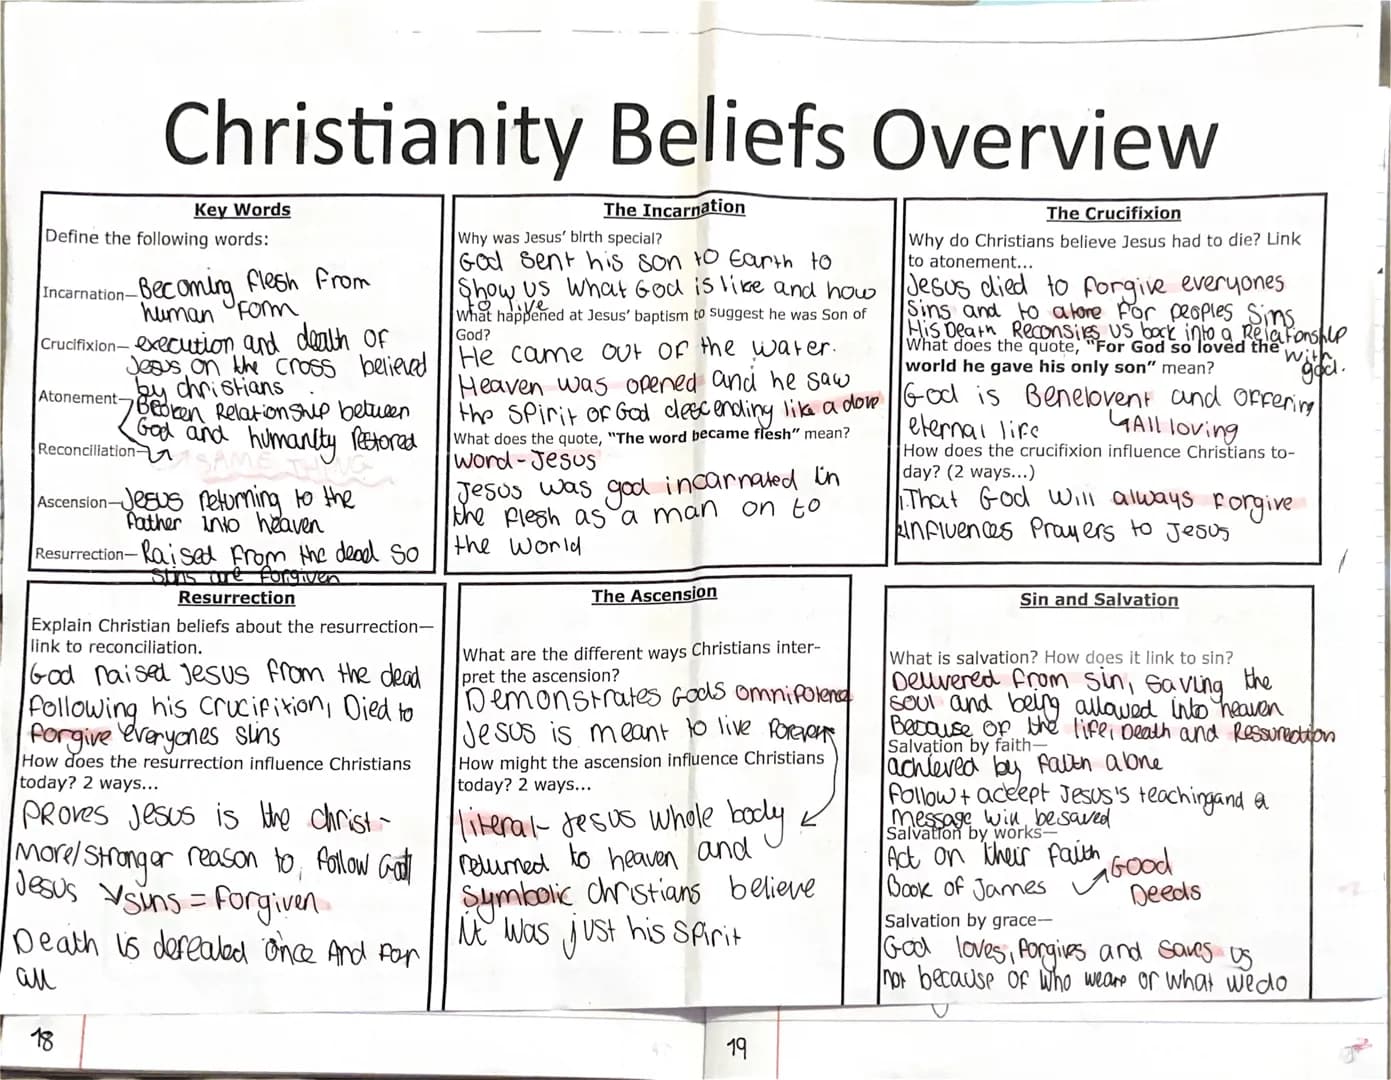 Christianity Beliefs Overview
Key Words
Define the following words:
Incarnation- Becoming flesh from
human form
Crucifixion- execution and death of
Jesus on the cross believed
by christians
Atonement- Broken Relationship between
God and humanity restored
Reconciliation-
SAME THING
Ascension- Jesus returning to the
Father into heaven
Resurrection- Raised from the dead so
sins are forgiven
The Incarnation
Why was Jesus' birth special?
God sent his son to Earth to
show us what God is like and how
to live
What happened at Jesus' baptism to suggest he was Son of
God?
He came out of the water.
Heaven was opened and he saw
the spirit of God descending like a dove
What does the quote, "The word became flesh" mean?
word-Jesus
Jesus was god incarnated in
the flesh as a man on to
the world
The Crucifixion
Why do Christians believe Jesus had to die? Link
to atonement...
Jesus died to forgive everyones
sins and to atone for peoples sins
His Death Reconsiles us back into a Relationship
with
god.
What does the quote, "For God so loved the
world he gave his only son" mean?
God is Benelovent and offering
eternal life All loving
How does the crucifixion influence Christians to-
day? (2 ways...)
1.That God will always forgive
2.Influences Prayers to Jesus
Resurrection
Explain Christian beliefs about the resurrection—
link to reconciliation.
God raised Jesus from the dead
following his crucifixion, Died to
forgive everyones sins
How does the resurrection influence Christians
today? 2 ways...
Proves Jesus is the christ-
More/Stronger reason to, follow God
Jesus sins = forgiven
Death is defeated once And for
all
The Ascension
What are the different ways Christians inter-
pret the ascension?
Demonstrates Gods omnipotence
Jesus is meant to live forever
How might the ascension influence Christians
today? 2 ways...
literal- Jesus whole body
returned to heaven and
Symbolic christians believe
it was just his spirit
Sin and Salvation
What is salvation? How does it link to sin?
Delivered from sin, saving the
soul and being allowed into heaven
Because of the life, Death and Ressurection
Salvation by faith—
achieved by faith alone
follow + accept Jesus's teaching and a
message will be saved
Salvation by works—
Act on their faith Good
Book of James Deeds
Salvation by grace—
God loves, forgives and saves us
not because of who we are or what we do
18
19